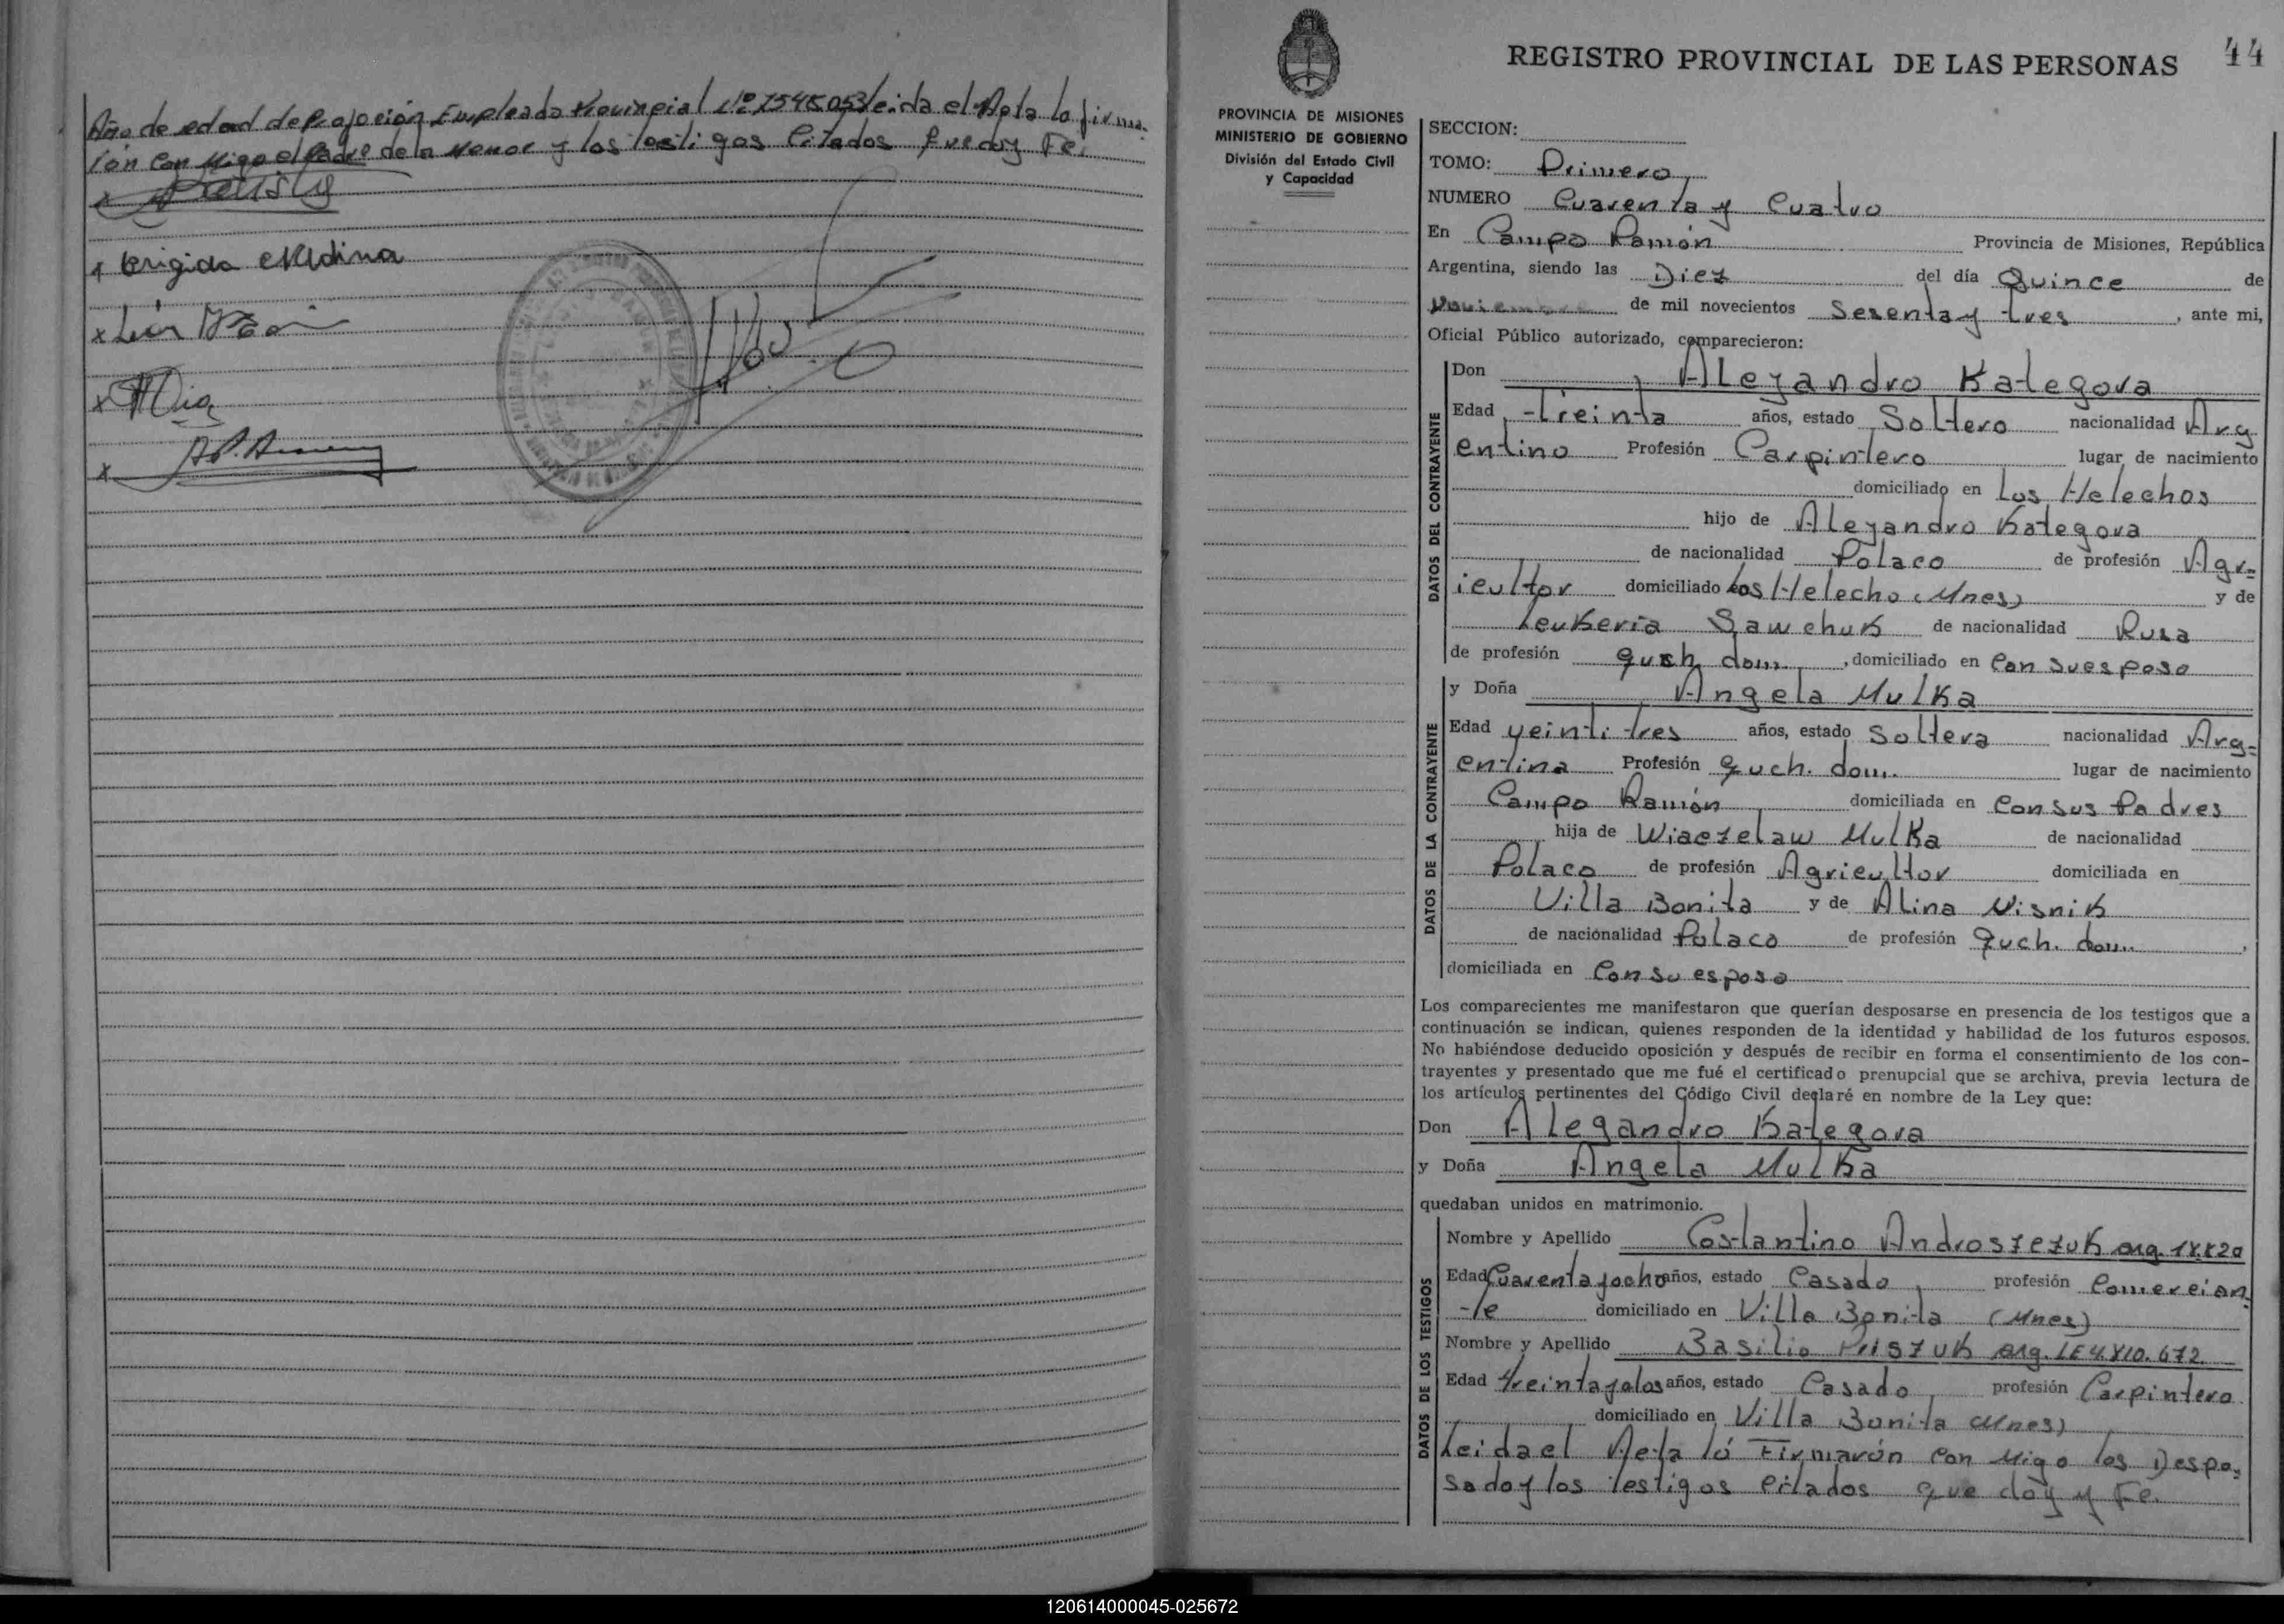 Año de edad de Profeción Empleado Provincial Nº 7545.053 leida el Acta lo firma-
rón con Migo el Padre de la Menor y los testigos Citados que doy Fe.
x
x Brigida Medina
x
x
x
44
REGISTRO PROVINCIAL DE LAS PERSONAS
PROVINCIA DE MISIONES
MINISTERIO DE GOBIERNO
División del Estado Civil
y Capacidad
SECCION:
TOMO: Primero
NUMERO Cuarenta y Cuatro
En Campo Ramón Provincia de Misiones, República
Argentina, siendo las Diez del día Quince de
Noviembre de mil novecientos Sesenta y tres, ante mi,
Oficial Público autorizado, comparecieron:
DATOS DEL CONTRAYENTE
Don Aleyandro Kategora
Edad Treinta años, estado Soltero nacionalidad Arg
entino Profesión Carpintero lugar de nacimiento
domiciliado en Los Helechos
hijo de Aleyandro Kategora
de nacionalidad Polaco de profesión Agr=
icultor domiciliado Los Helecho (Mnes) y de
Leukeria Sawchuk de nacionalidad Rusa
de profesión queh. dom., domiciliado en Con su esposo
DATOS DE LA CONTRAYENTE
y Doña Angela Mulka
Edad veintitres años, estado Soltera nacionalidad Arg=
entina Profesión queh. dom. lugar de nacimiento
Campo Ramón domiciliada en Con sus Padres
hija de Wiaczelaw Mulka de nacionalidad
Polaco de profesión Agricultor domiciliada en
Villa Bonita y de Alina Nisnik
de nacionalidad Polaca de profesión queh. dom.,
domiciliada en Con su esposo
Los comparecientes me manifestaron que querían desposarse en presencia de los testigos que a
continuación se indican, quienes responden de la identidad y habilidad de los futuros esposos.
No habiéndose deducido oposición y después de recibir en forma el consentimiento de los con-
trayentes y presentado que me fué el certificado prenupcial que se archiva, previa lectura de
los artículos pertinentes del Código Civil declaré en nombre de la Ley que:
Don Alegandro Kategora
y Doña Angela Mulka
quedaban unidos en matrimonio.
DATOS DE LOS TESTIGOS
Nombre y Apellido Costantino Androszczuk arg.
Edad Cuarentayocho años, estado Casado, profesión Comercian-
te domiciliado en Villa Bonita (Mnes)
Nombre y Apellido Basilio arg. LE
Edad treintaydos años, estado Casado, profesión Carpintero
domiciliado en Villa Bonita (Mnes)
Leida el Acta ló Firmarón con Migo los Despo-
sado y los testigos citados que doy y Fe.
120614000045-025672